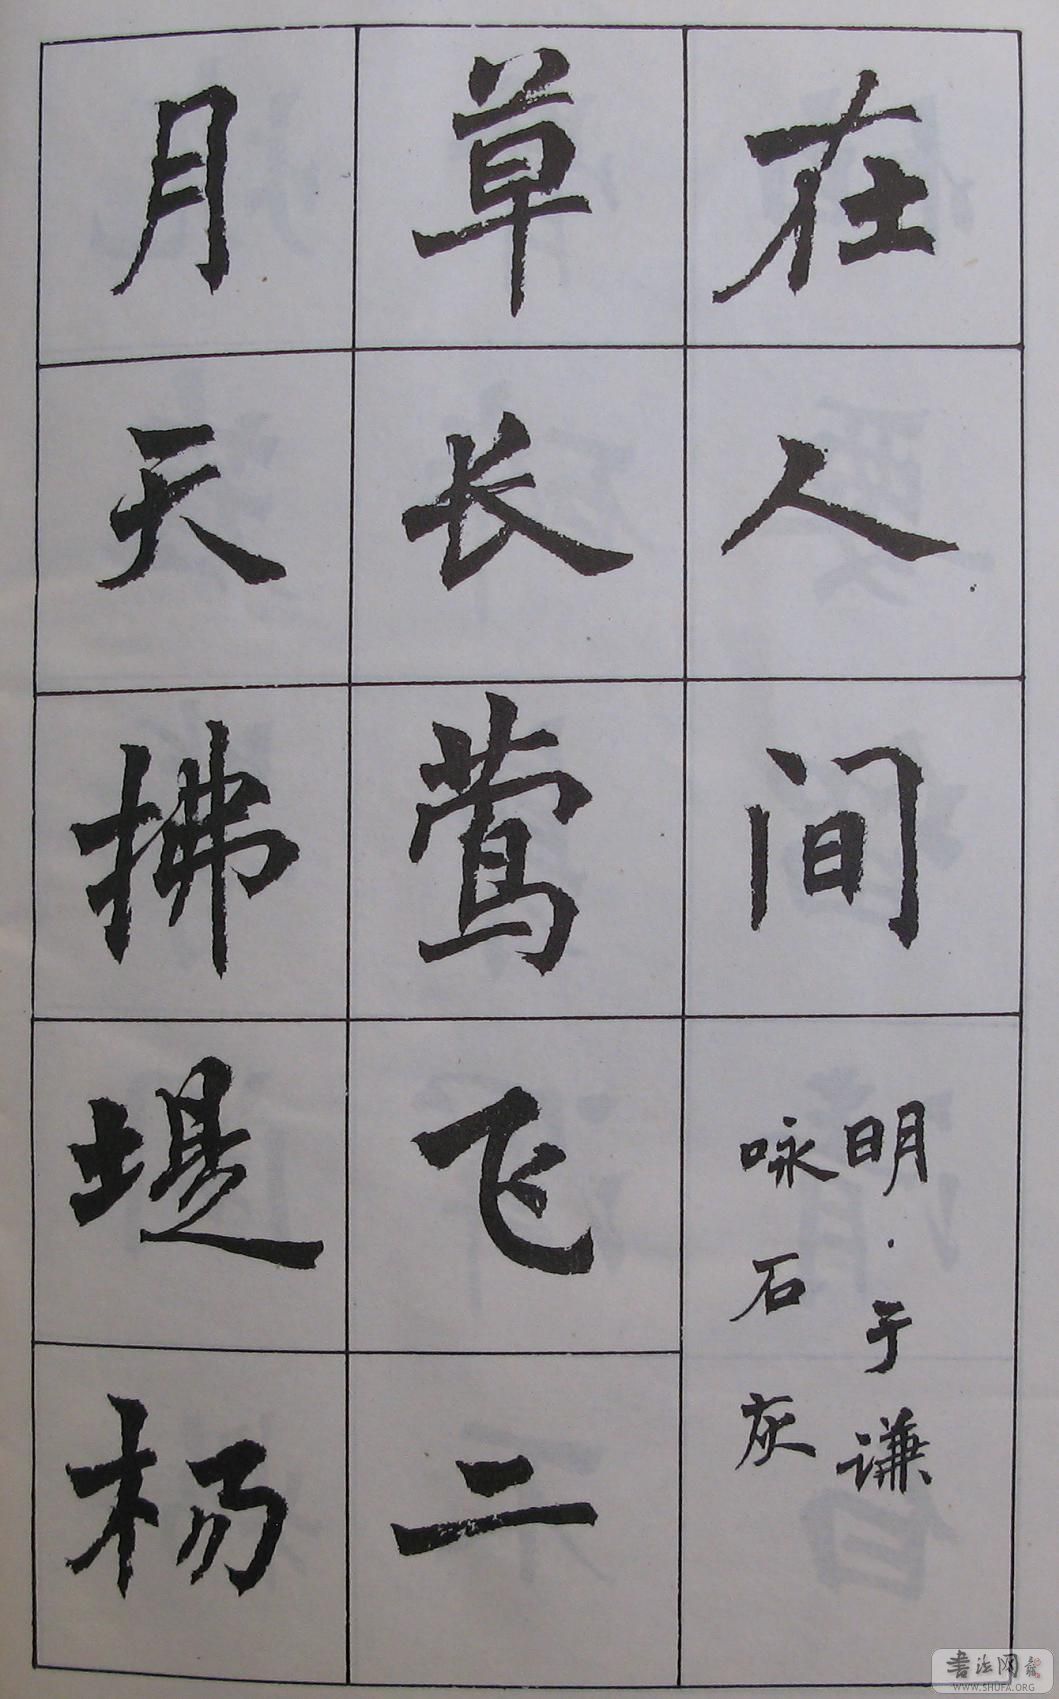 在人间
明·于谦
咏石灰
草长莺飞二
月天拂堤杨
书法网
WWW.SHUFA.ORG